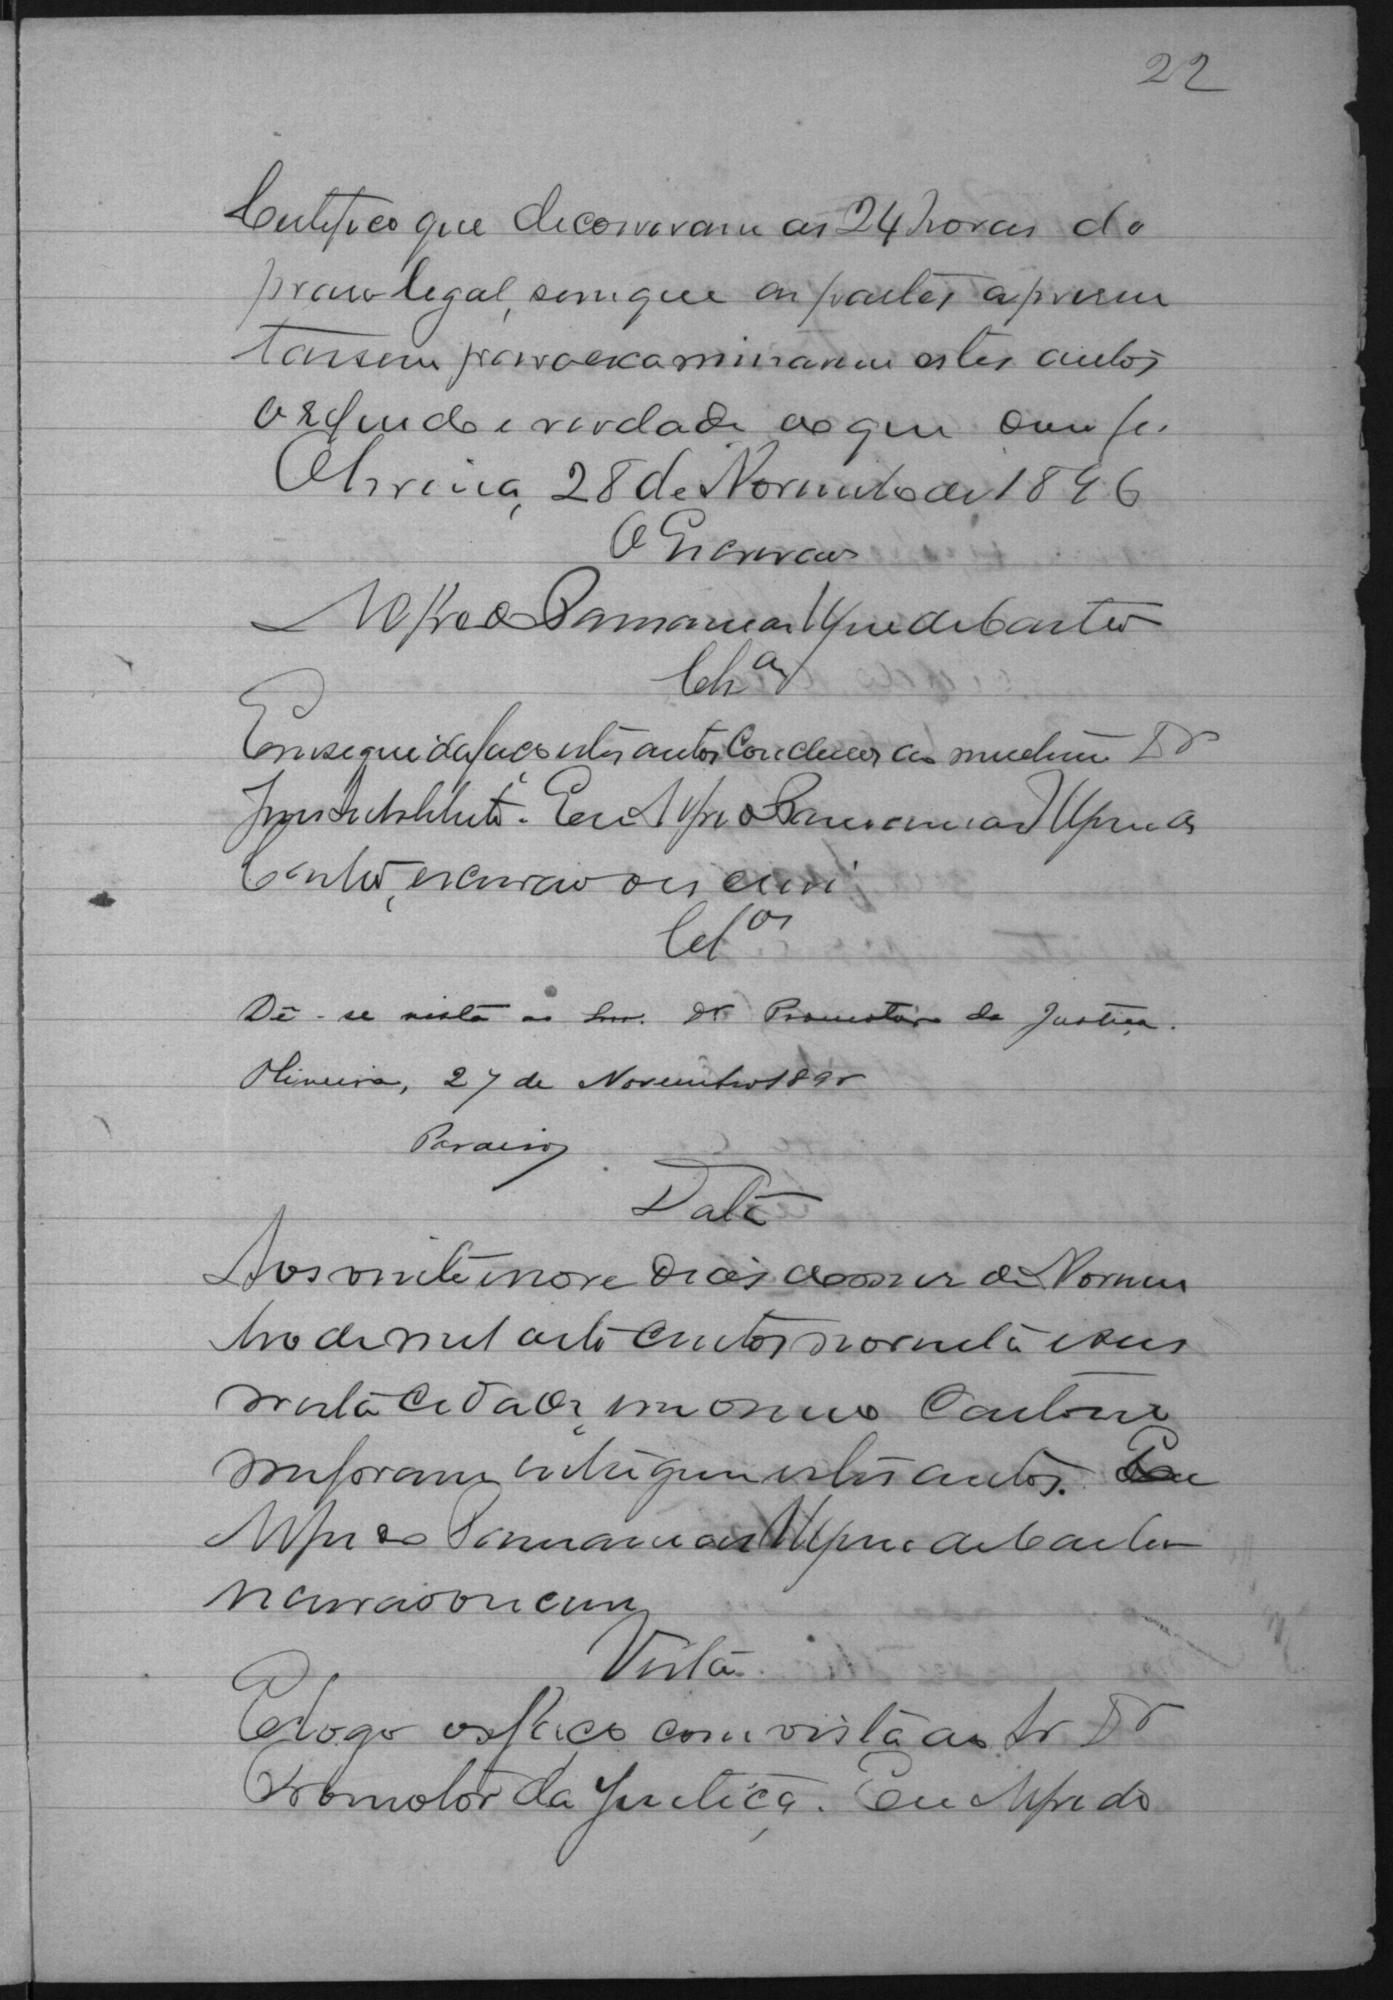 22
Certifico que decorreram as 24 horas do
praso legal, sem que as partes apresen
tassem para examinarem estes autos
o referido é verdade do que dou fé.
Oliveira, 28 de Novembro de 1896
O Escrivão
Alfredo
Cls
Em seguida faço estes autos conclusos ao meritis. Dr
Juis substituto. Eu Alfredo
Castro, escrivão o escrevi
Cls
Dê-se vista ao Snr. Dr Promotor da Justiça.
Oliveira, 27 de Novembro 189
Data
Aos vinte e nove dias do mez de Novem
bro de mil oito centos noventa e seis
nesta Cidade, em o meu Cartorio
me foram entregues estes autos. Eu
Alfredo de Castro
escrivão o escrevi
Vista
E logo os faço com vista ao Sr Dr
Promotor da Justiça. Eu Alfredo